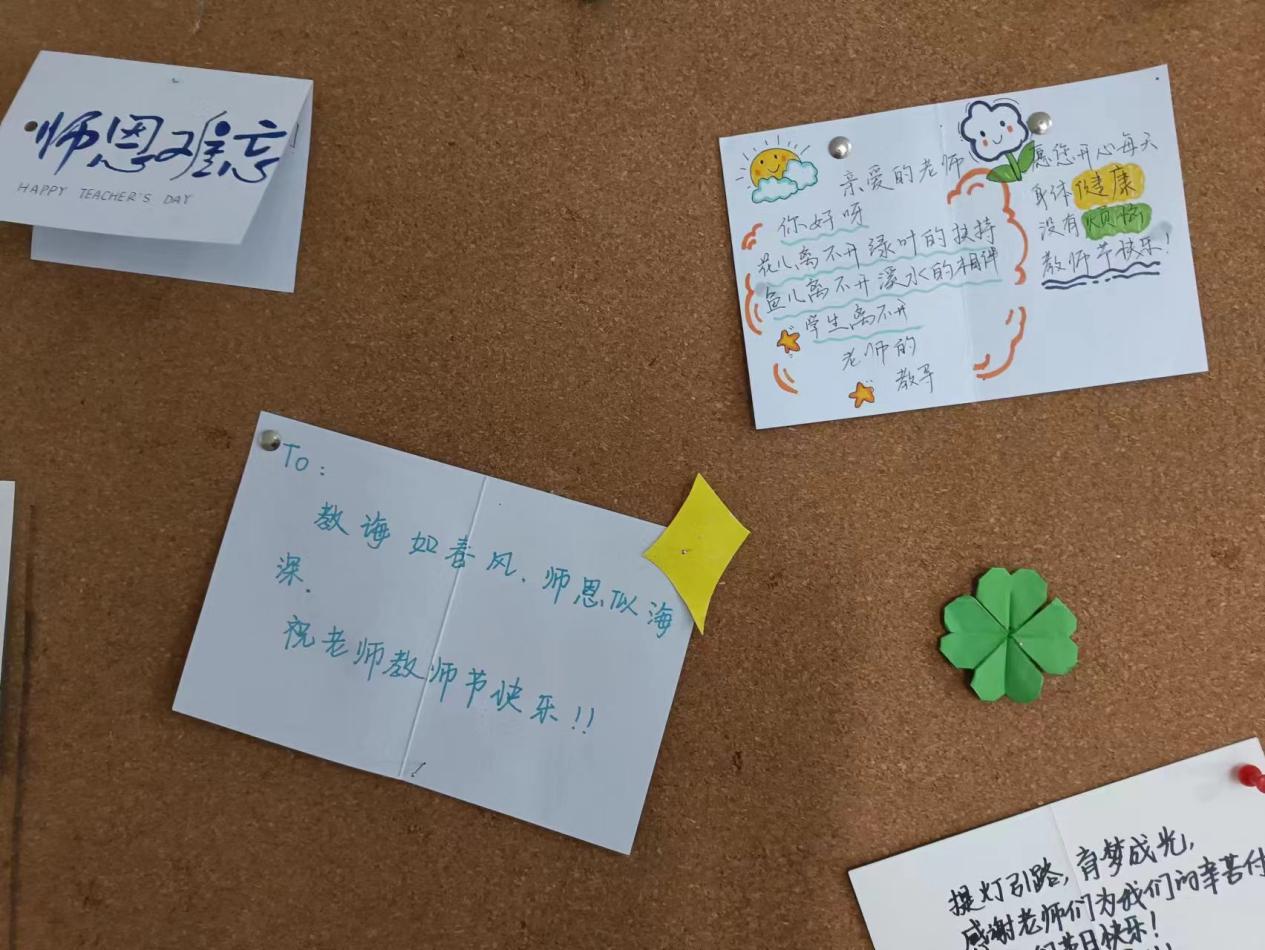 师恩难忘
HAPPY TEACHER'S DAY
亲爱的老师
你好呀
花儿离不开绿叶的扶持
鱼儿离不开溪水的相伴
学生离不开
老师的
教导
愿您开心每天
身体健康
没有烦恼
教师节快乐!
To:
教诲如春风.师恩似海
深.
祝老师教师节快乐!!
提灯引路,育梦成光,
感谢老师们为我们的辛苦付
节日快乐!